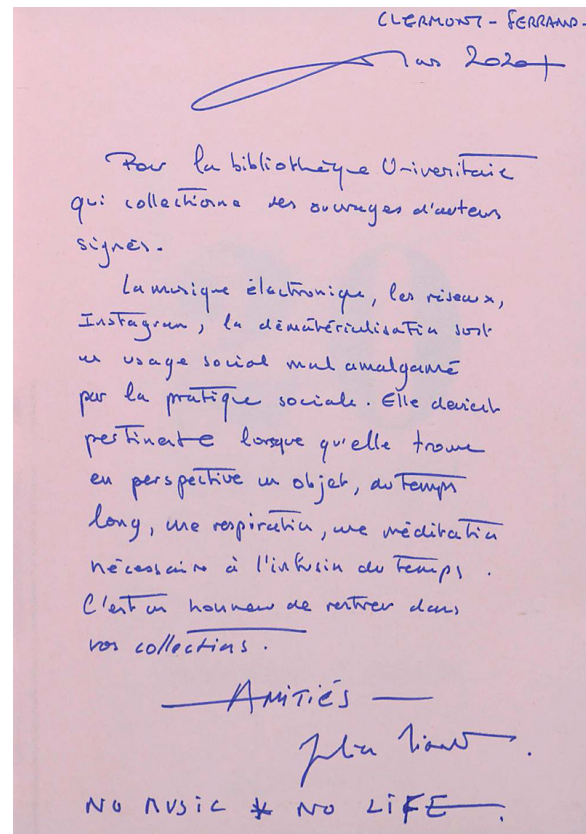 CLERMONT-FERRAND-
Mars 2024
Pour la bibliothèque Universitaire
qui collectionne des ouvrages d'auteurs
signés.
La musique électronique, les réseaux,
Instagram, la dématérialisation sont
un usage social mal amalgamé
par la pratique sociale. Elle devient
pertinente lorsque qu'elle trouve
en perspective un objet, du temps
long, une respiration, une méditation
nécessaire à l'infusion du temps.
C'est un honneur de rentrer dans
vos collections.
— AMITIÉS —
Julien
NO MUSIC * NO LIFE.